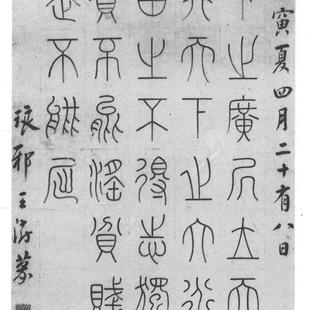 寅夏四月二十有八日
下之廣居立天
行天下之大道
由之不得志獨
貴不能淫貧賤
武不能屈
琅邪王澍篆